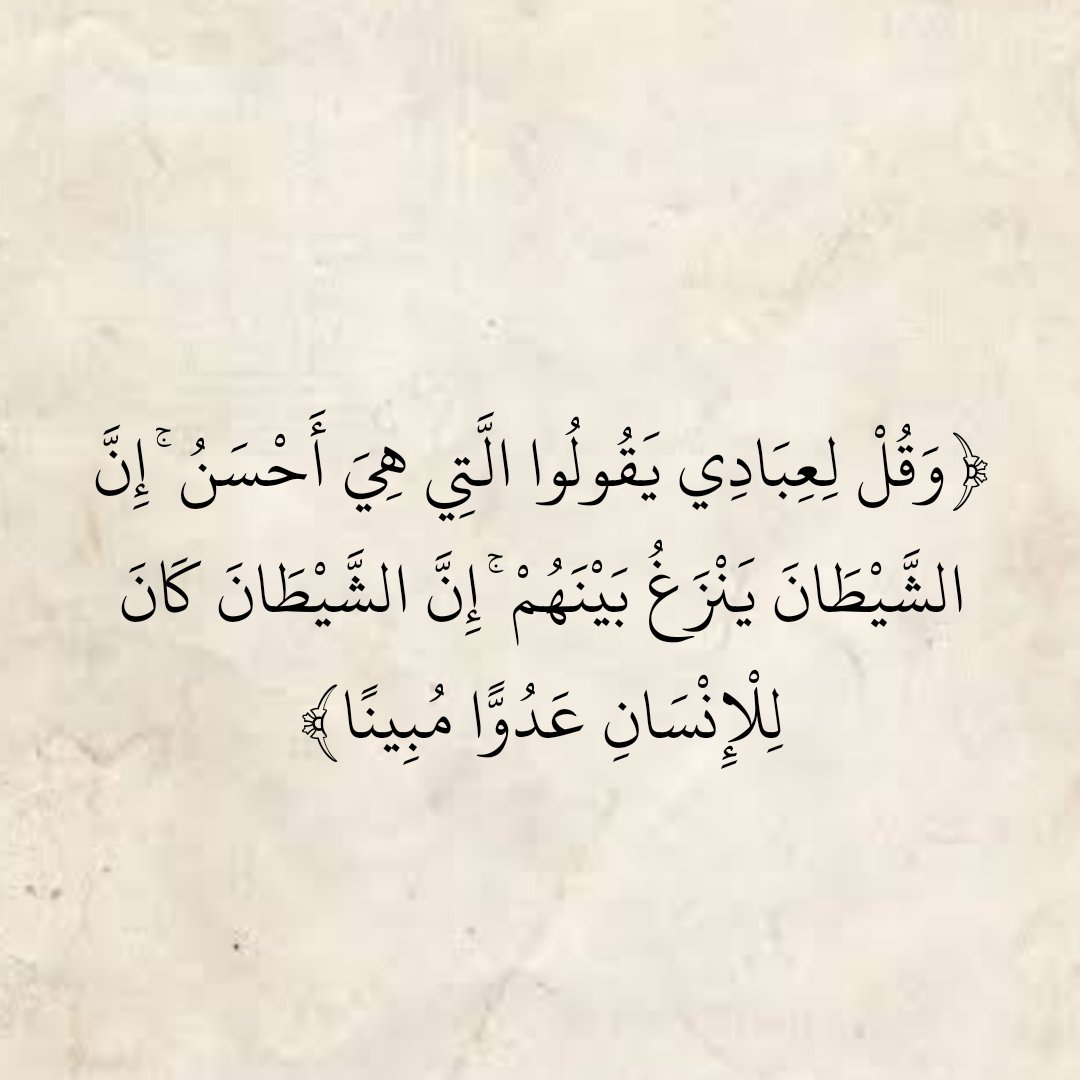 ﴿وَقُلْ لِعِبَادِي يَقُولُوا الَّتِي هِيَ أَحْسَنُ ۚ إِنَّ
الشَّيْطَانَ يَنْزَغُ بَيْنَهُمْ ۚ إِنَّ الشَّيْطَانَ كَانَ
لِلْإِنْسَانِ عَدُوًّا مُبِينًا﴾